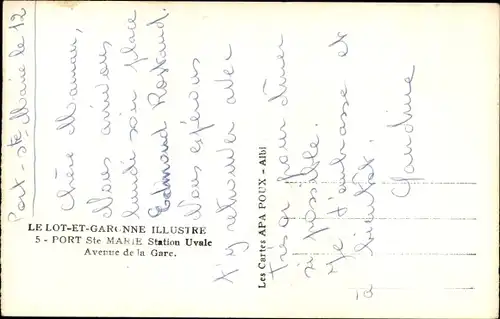 Port-Ste Marie le 12
Chère Maman,
Nous arrivons
lundi soir place
Edmond Rostand.
Nous espérons
t'y retrouver avec
Trésor pour dîner
si possible.
Je t'embrasse et
à bientôt.
Claudine
LE LOT-ET-GARONNE ILLUSTRE
5 - PORT Ste MARIE Station Uvale
Avenue de la Gare.
Les Cartes APA POUX - Albi